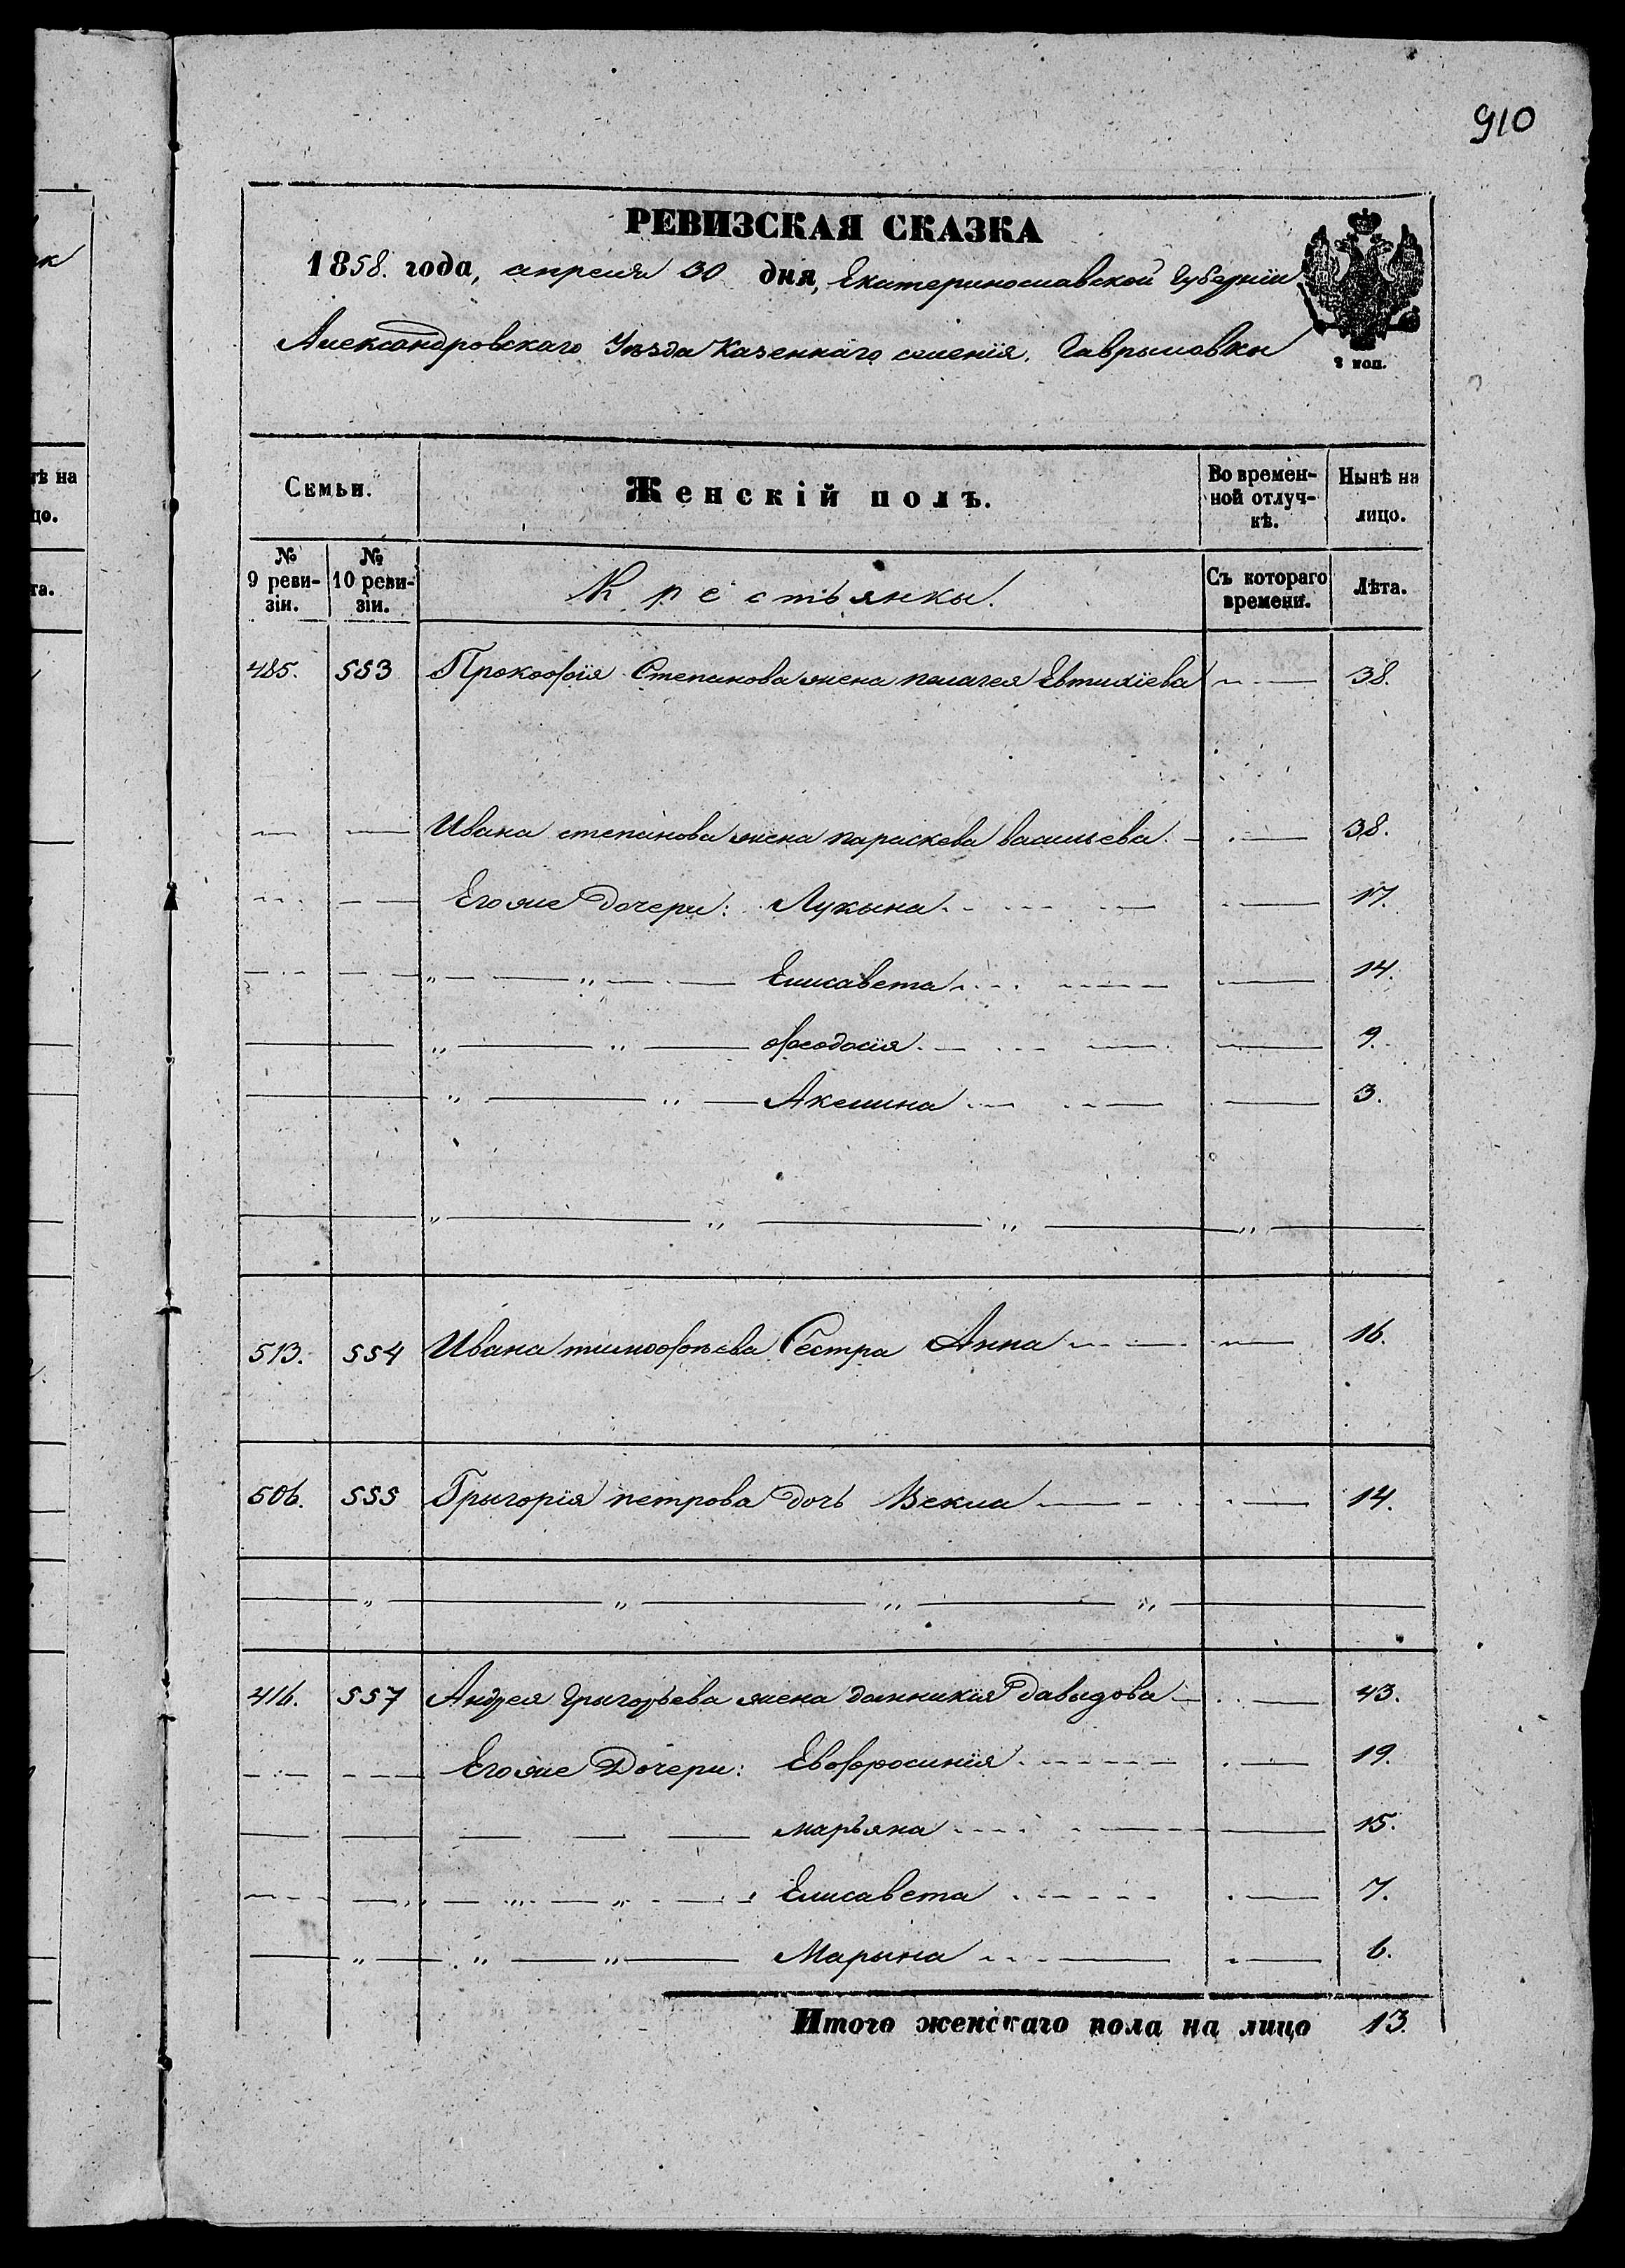 910
РЕВИЗСКАЯ СКАЗКА
1858. года, апреля 30 дня, Екатеринославской Губерніи
Александровскаго Уѣзда Казеннаго селенія. Гаврыловки
3 коп.
Семьи. Женскій полъ. Во времен-ной отлуч-кѣ. Нынѣ на лицо.
№ 9 реви-зіи. № 10 реви-зіи. Крестьянки. Съ котораго времени. Лѣта.
485. 553 Прокофія Степанова жена пелагея Евтихіева 38.
Ивана степанова жена параскева васильева. 38.
Егоже дочери: Лукына 17.
Елисавета 14.
феодосія 9.
Акелина 3.
513. 554 Ивана тимофѣева Сестра Анна 16.
506. 555 Грыгорія петрова дочь Векла 14.
416. 557 Андрея Грыгорьева жена данникія Давыдова 43.
Егоже Дочери: Евфросинія 19.
марьяна 15.
Елисавета 7.
Марына 6.
Итого женскаго пола на лицо 13.